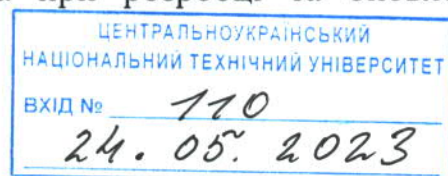 при розробці та
ЦЕНТРАЛЬНОУКРАЇНСЬКИЙ
НАЦІОНАЛЬНИЙ ТЕХНІЧНИЙ УНІВЕРСИТЕТ
ВХІД № 110
24. 05. 2023